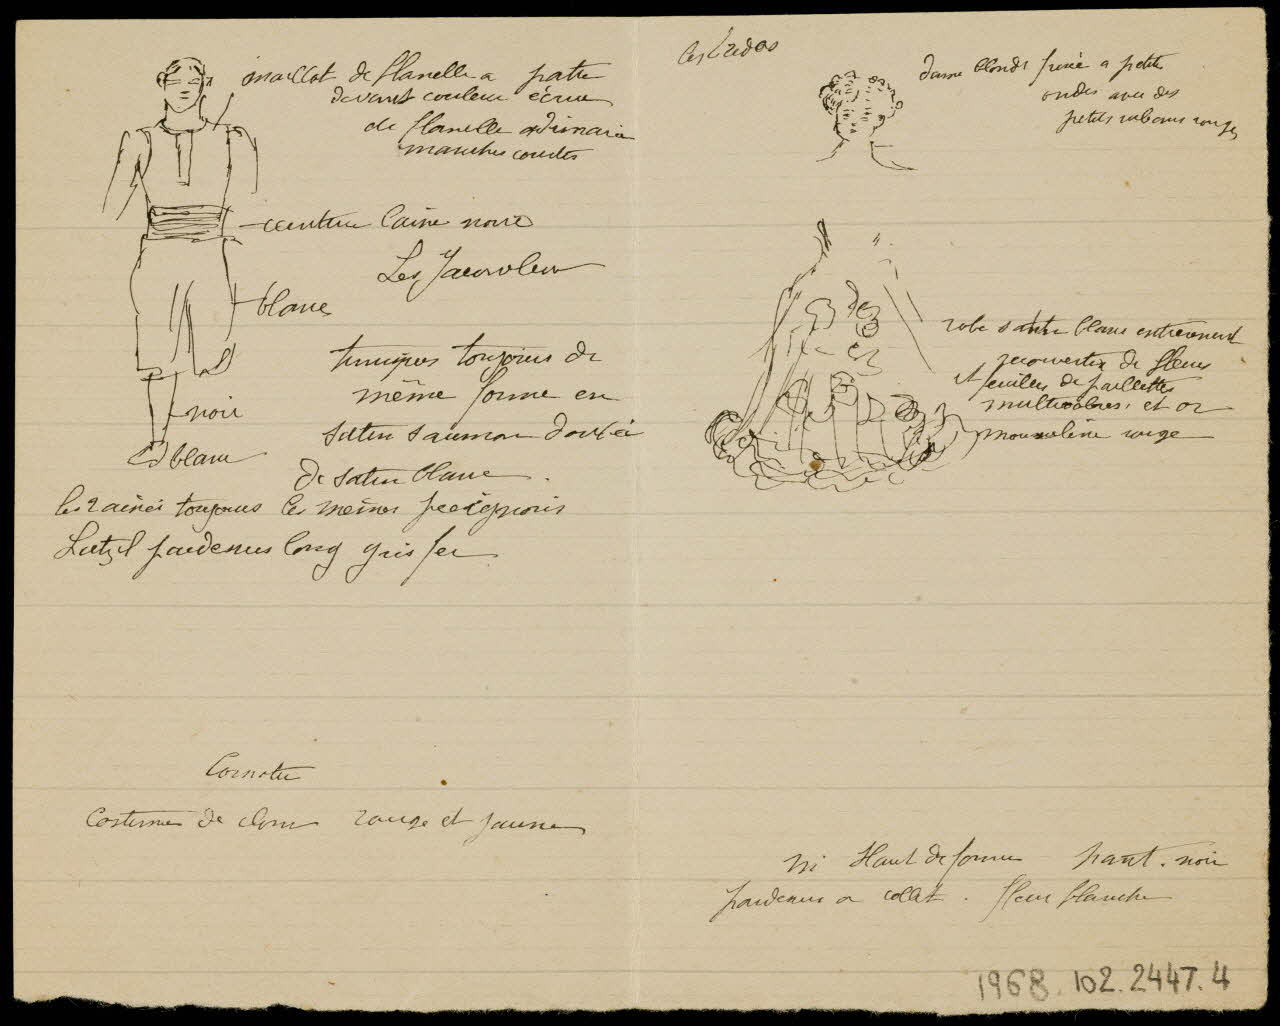 maillot de flanelle a patte
devant couleur écrue
de flanelle ordinaire
manches courtes
ceinture laine noire
Les
blanc
tuniques toujours de
même forme en
satin saumon
de satin blanc.
toujours les mêmes peignoirs
pardessus long gris fer
noir
blanc
costumes de clown rouge et jaune
dame blonde frisée a petits
ondes avec des
petits rubans rouges
robe satin blanc entièrement
recouverte de fleurs
et feuilles de paillettes
multicolores, et or
mousseline rouge
Haut de forme pant. noir
pardessus a collet. fleur blanche
1968.102.2447.4